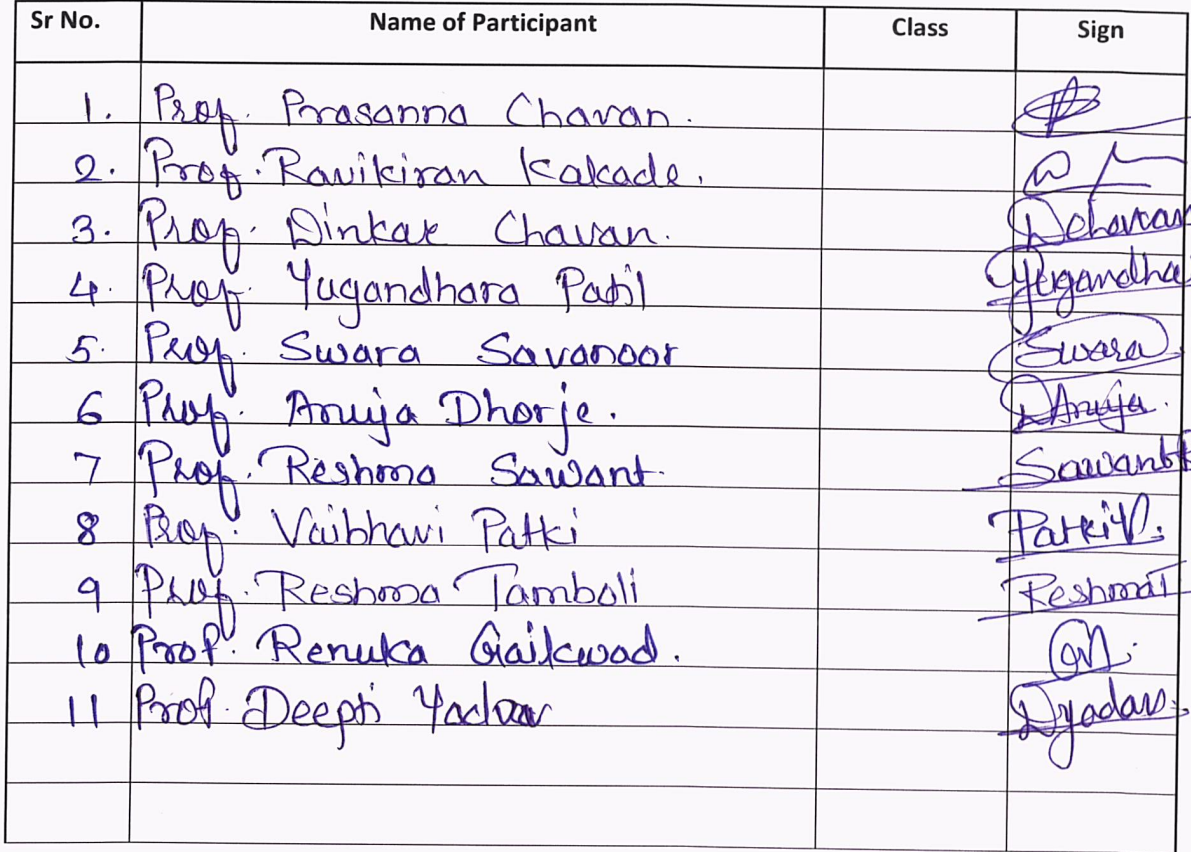 Sr No. Name of Participant Class Sign
1. Prof. Prasanna Chavan.
2. Prof. Ravikiran Kakade.
3. Prof. Dinkar Chavan. Dchavan
4. Prof. Yugandhara Patil Yugandha
5. Prof. Swara Savanoor Swara
6 Prof. Anuja Dhorje. DAnuja.
7 Prof. Reshma Sawant. Sawant
8 Prof. Vaibhavi Patki PatkiV.
9 Prof. Reshma Tamboli ReshmaT
10 Prof. Renuka Gaikwad.
11 Prof. Deepti Yadav Dyadav